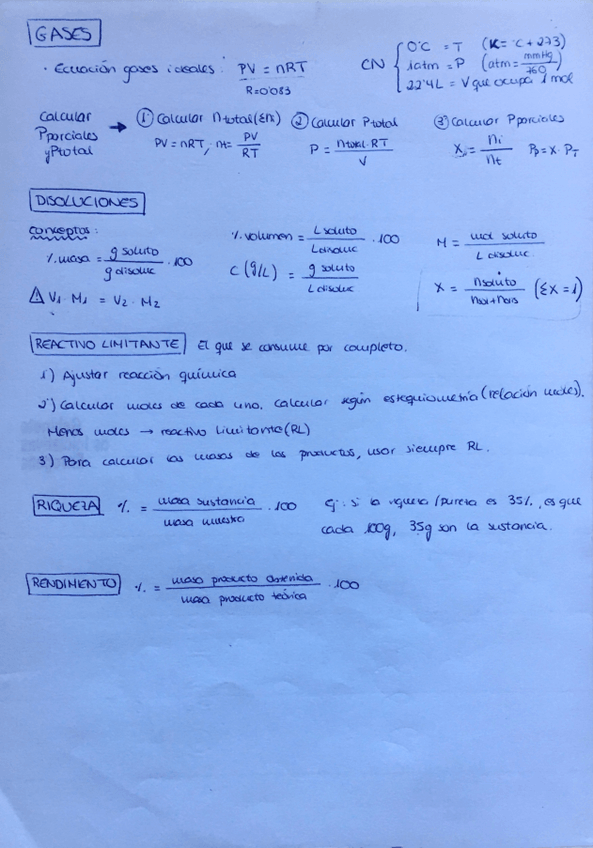 GASES
· Ecuación gases ideales: PV = nRT
R=0'083
CN { 0°C = T (K = °C + 273)
1atm = P (atm = mmHg/760)
22'4L = V que ocupa 1 mol
Calcular Pparciales y Ptotal → ① Calcular ntotal (Σn) ② Calcular Ptotal ③ Calcular Pparciales
PV = nRT, nt = PV/RT P = ntotal·RT/V Xi = ni/nt Pp = X · PT
DISOLUCIONES
conceptos:
% masa = g soluto/g disoluc · 100 % volumen = L soluto/L disoluc · 100 M = mol soluto/L disoluc.
C (g/L) = g soluto/L disoluc X = nsoluto/nsol+ndis (ΣX = 1)
⚠ V1 · M1 = V2 · M2
REACTIVO LIMITANTE El que se consume por completo.
1) Ajustar reacción química
2) Calcular moles de cada uno. Calcular según estequiometría (relación moles).
Menos moles → reactivo limitante (RL)
3) Para calcular las masas de los productos, usar siempre RL.
RIQUEZA % = masa sustancia/masa muestra · 100 Ej: si la riqueza/pureza es 35%, es que
cada 100g, 35g son la sustancia.
RENDIMIENTO % = masa producto obtenida/masa producto teórica · 100